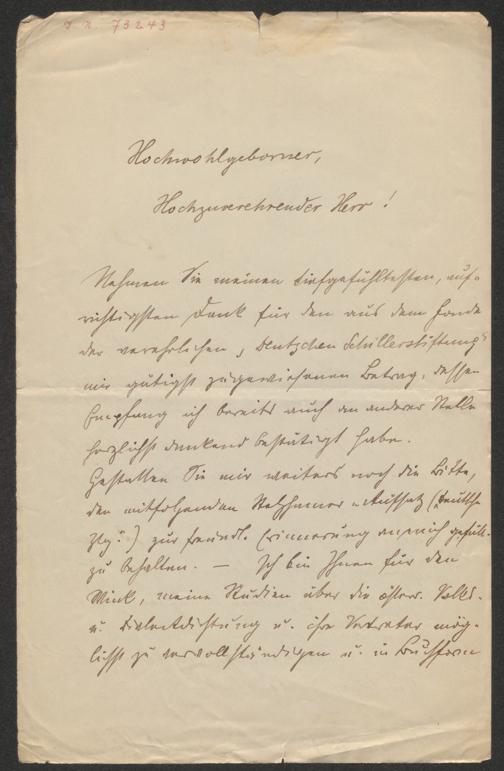 I. N. 73243
Hochwohlgeborner,
Hochzuverehrender Herr!
Nehmen Sie meinen tiefgefühltesten, auf-
richtigsten Dank für den aus dem Fonde
der verehrlichen „Deutschen Schillerstiftung"
mir gütigst zugewiesenen Betrag, dessen
Empfang ich bereits auch an anderer Stelle
herzlichst dankend bestätigt habe.
Gestatten Sie mir weiters noch die Bitte,
den mitfolgenden Stelzhamer-Aufsatz („Deutsche
Ztg.") zur freundl. Erinnerung an mich gefäll.
zu behalten. — Ich bin Ihnen für den
Wink, meine Studien über die österr. Volks-
u. Dialectdichtung u. ihre Vertreter mög-
lichst zu vervollständigen u. in Buchform